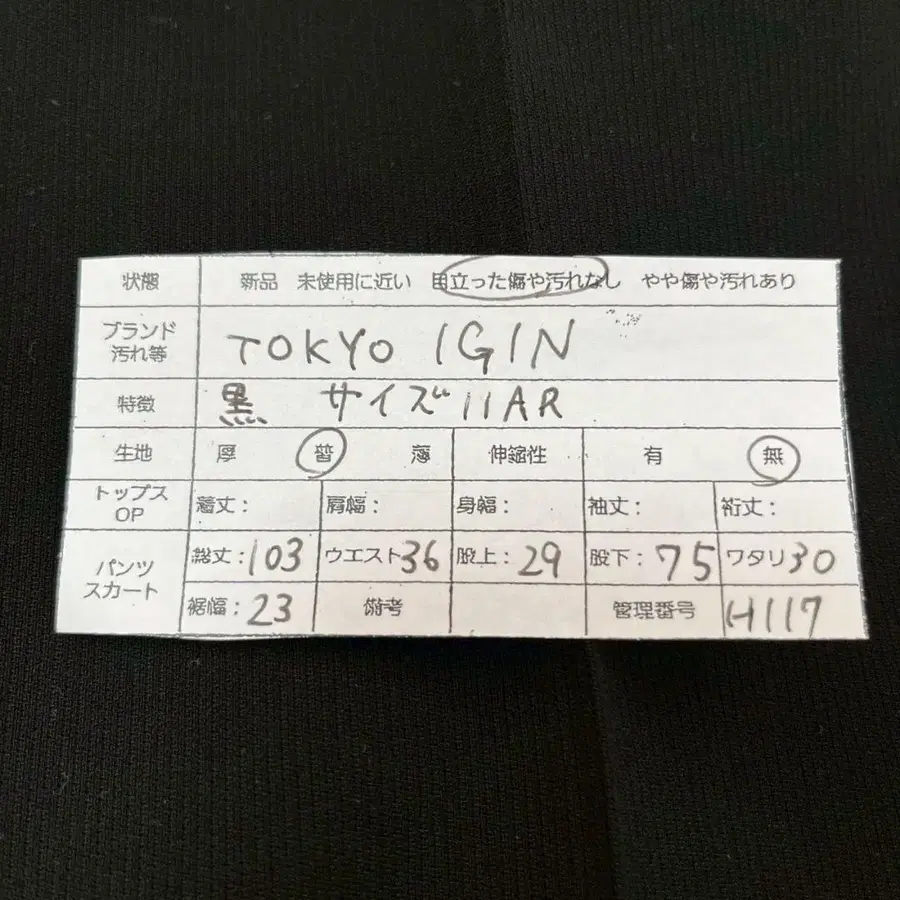 状態 新品 未使用に近い 目立った傷や汚れなし やや傷や汚れあり
ブランド
汚れ等 TOKYO IGIN
特徴 黒 サイズ11AR
生地 厚 普 薄 伸縮性 有 無
トップス
OP 着丈: 肩幅: 身幅: 袖丈: 裄丈:
パンツ
スカート 総丈:103 ウエスト36 股上:29 股下:75 ワタリ30
裾幅:23 備考 管理番号 H117